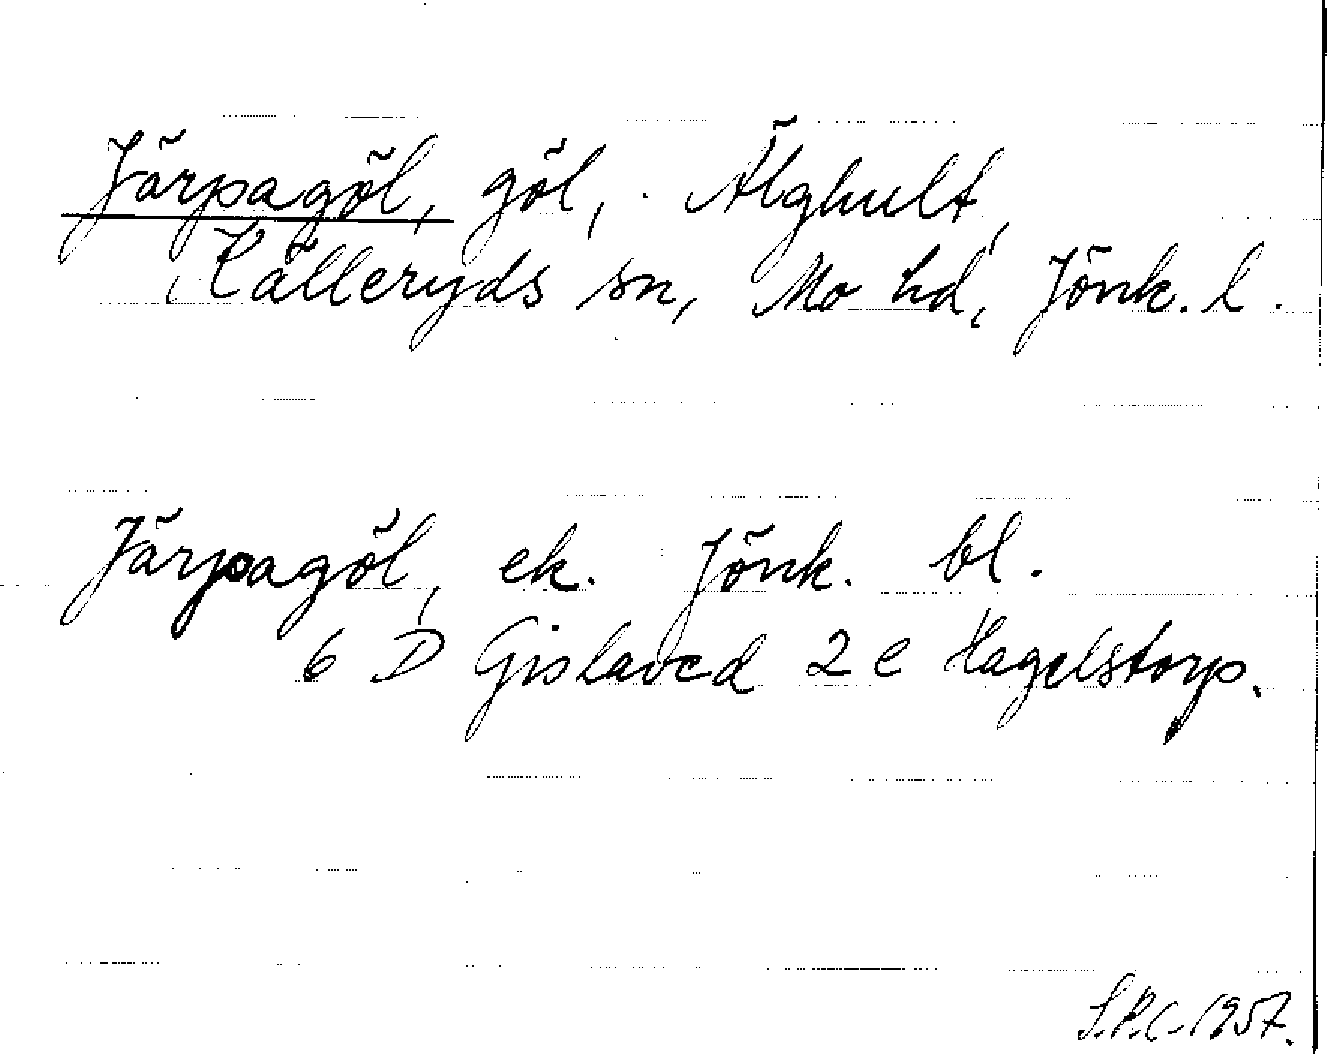 Järpagöl, göl, Älghult,
Källeryds sn, Mo hd, Jönk. l.
Järpagöl, ek. Jönk. bl.
6 D Gislaved 2 e Hagelstorp.
1957.